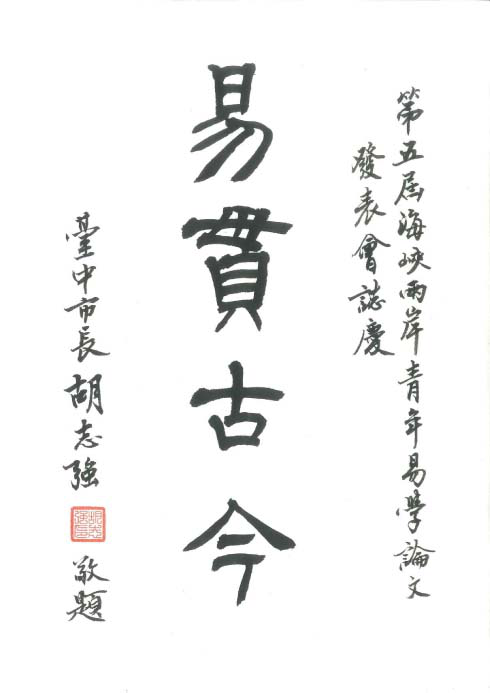 第五屆海峽兩岸青年易學論文
發表會誌慶
易貫古今
臺中市長胡志強
敬題